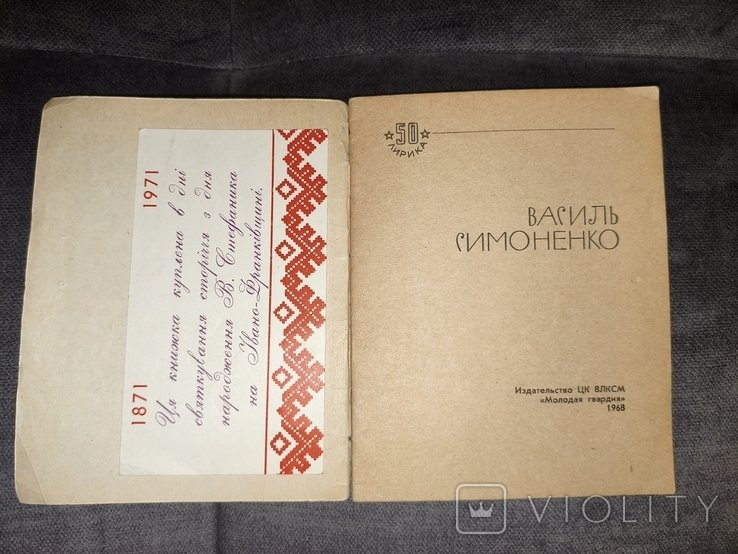 1871 1971
Ця книжка куплена в дні
святкування сторіччя з дня
народження В. Стефаника
на Івано-Франківщині.
50
ЛИРИКА
ВАСИЛЬ
СИМОНЕНКО
Издательство ЦК ВЛКСМ
«Молодая гвардия»
1968
VIOLITY